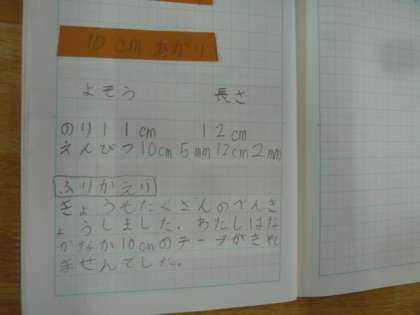 10cm あかり
よそう 長さ
のり 11cm 12cm
えんぴつ 10cm 5mm 12cm 2mm
ふりかえり
きょうもたくさんのべんき
ょうしました。わたしはな
かなか10cmのテープがきれ
ませんでした。